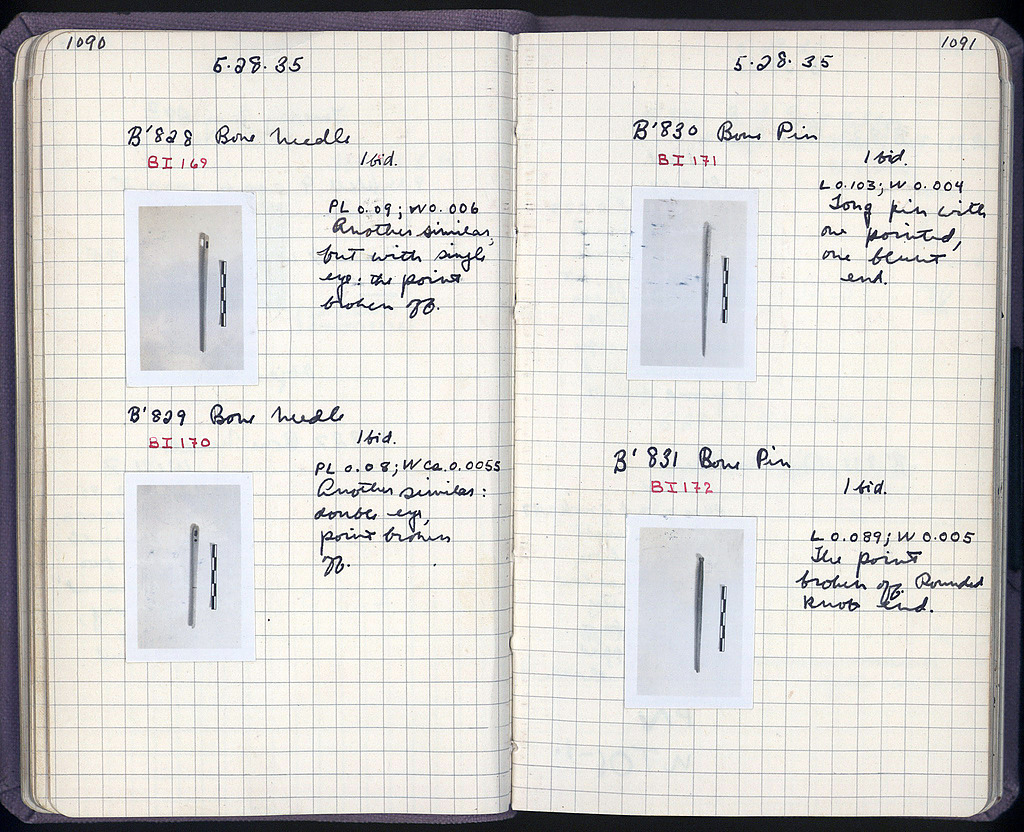 1090
5.28.35
B'828 Bone Needle
BI 169
Ibid.
PL 0.09; W 0.006
Another similar,
but with single
eye: the point
broken off.
B'829 Bone Needle
BI 170
Ibid.
PL 0.08; W ca. 0.0055
Another similar:
double eye,
point broken
off.
1091
5.28.35
B'830 Bone Pin
BI 171
Ibid.
L 0.103; W 0.004
Long pin with
one pointed,
one blunt
end.
B'831 Bone Pin
BI 172
Ibid.
L 0.089; W 0.005
The point
broken off. Rounded
knob end.